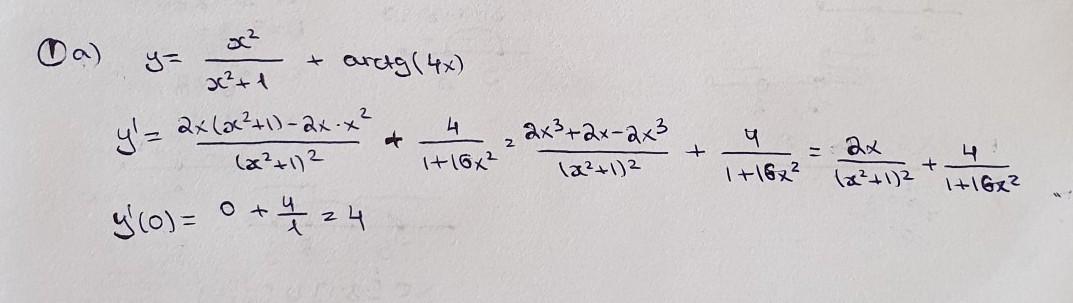 ① a) y = x²/(x²+1) + arctg(4x)
y' = (2x(x²+1)-2x·x²)/(x²+1)² + 4/(1+16x²) = (2x³+2x-2x³)/(x²+1)² + 4/(1+16x²) = 2x/(x²+1)² + 4/(1+16x²)
y'(0) = 0 + 4/1 = 4